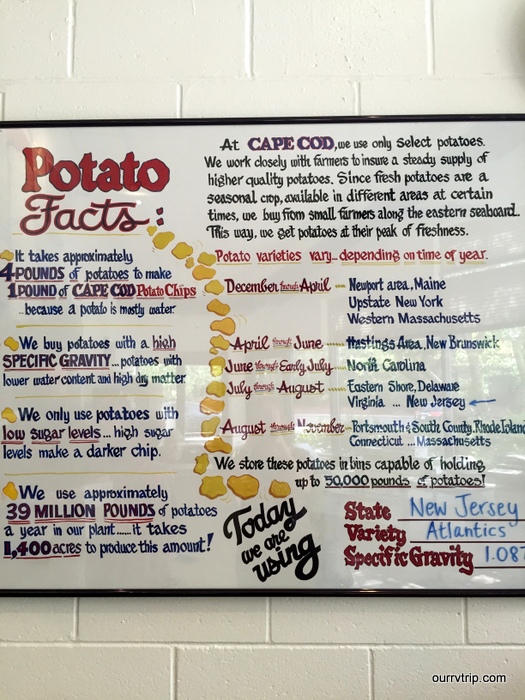 Potato
Facts:
It takes approximately
4 POUNDS of potatoes to make
1 POUND of CAPE COD Potato Chips
...because a potato is mostly water.
We buy potatoes with a high
SPECIFIC GRAVITY...potatoes with
lower water content and high dry matter.
We only use potatoes with
low sugar levels...high sugar
levels make a darker chip.
We use approximately
39 MILLION POUNDS of potatoes
a year in our plant.....it takes
1,400 acres to produce this amount!
At CAPE COD, we use only select potatoes.
We work closely with farmers to insure a steady supply of
higher quality potatoes. Since fresh potatoes are a
seasonal crop, available in different areas at certain
times, we buy from small farmers along the eastern seaboard.
This way, we get potatoes at their peak of freshness.
Potato varieties vary...depending on time of year.
December through April ... Newport area, Maine
Upstate New York
Western Massachusetts
April through June ... Hastings Area, New Brunswick
June through Early July ... North Carolina
July through August ... Eastern Shore, Delaware
Virginia ... New Jersey ←
August through November ... Portsmouth & South County, Rhode Island
Connecticut ... Massachusetts
We store these potatoes in bins capable of holding
up to 50,000 pounds of potatoes!
Today
we are
using
State New Jersey
Variety Atlantics
Specific Gravity 1.087
ourrvtrip.com